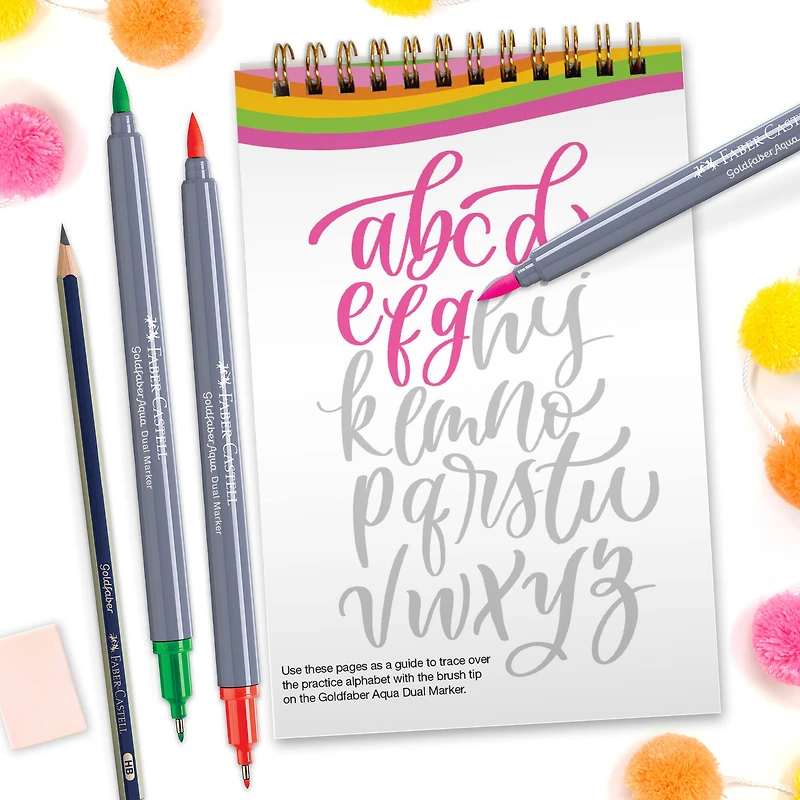 abcd
efghij
klmno
pqrstu
vwxyz
Use these pages as a guide to trace over
the practice alphabet with the brush tip
on the Goldfaber Aqua Dual Marker.
FABER-CASTELL
Goldfaber Aqua
FABER-CASTELL
Goldfaber Aqua Dual Marker
FABER-CASTELL
Goldfaber Aqua Dual Marker
Goldfaber
FABER-CASTELL
HB